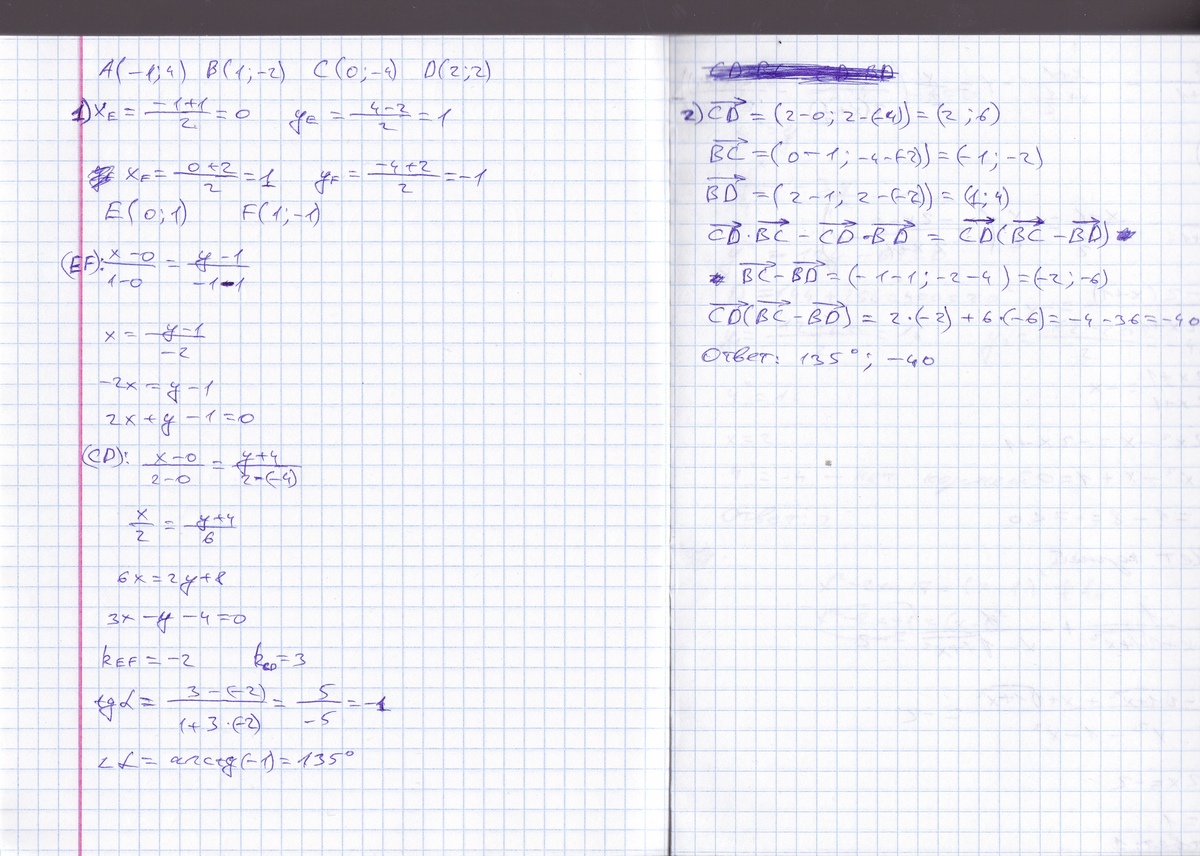 A(-1;4) B(1;-2) C(0;-4) D(2;2)
1) x_E = (-1+1)/2 = 0 y_E = (4-2)/2 = 1
x_F = (0+2)/2 = 1 y_F = (-4+2)/2 = -1
E(0;1) F(1;-1)
(EF): (x-0)/(1-0) = (y-1)/(-1-1)
x = (y-1)/(-2)
-2x = y-1
2x+y-1=0
(CD): (x-0)/(2-0) = (y+4)/(2-(-4))
x/2 = (y+4)/6
6x=2y+8
3x-y-4=0
k_EF = -2 k_CD = 3
tgα = (3-(-2))/(1+3·(-2)) = 5/(-5) = -1
∠α = arctg(-1) = 135°
2) CD⃗ = (2-0; 2-(-4)) = (2;6)
BC⃗ = (0-1; -4-(-2)) = (-1;-2)
BD⃗ = (2-1; 2-(-2)) = (1;4)
CD⃗·BC⃗ - CD⃗·BD⃗ = CD⃗(BC⃗-BD⃗)
BC⃗-BD⃗ = (-1-1; -2-4) = (-2;-6)
CD⃗(BC⃗-BD⃗) = 2·(-2)+6·(-6) = -4-36 = -40
Ответ: 135°; -40